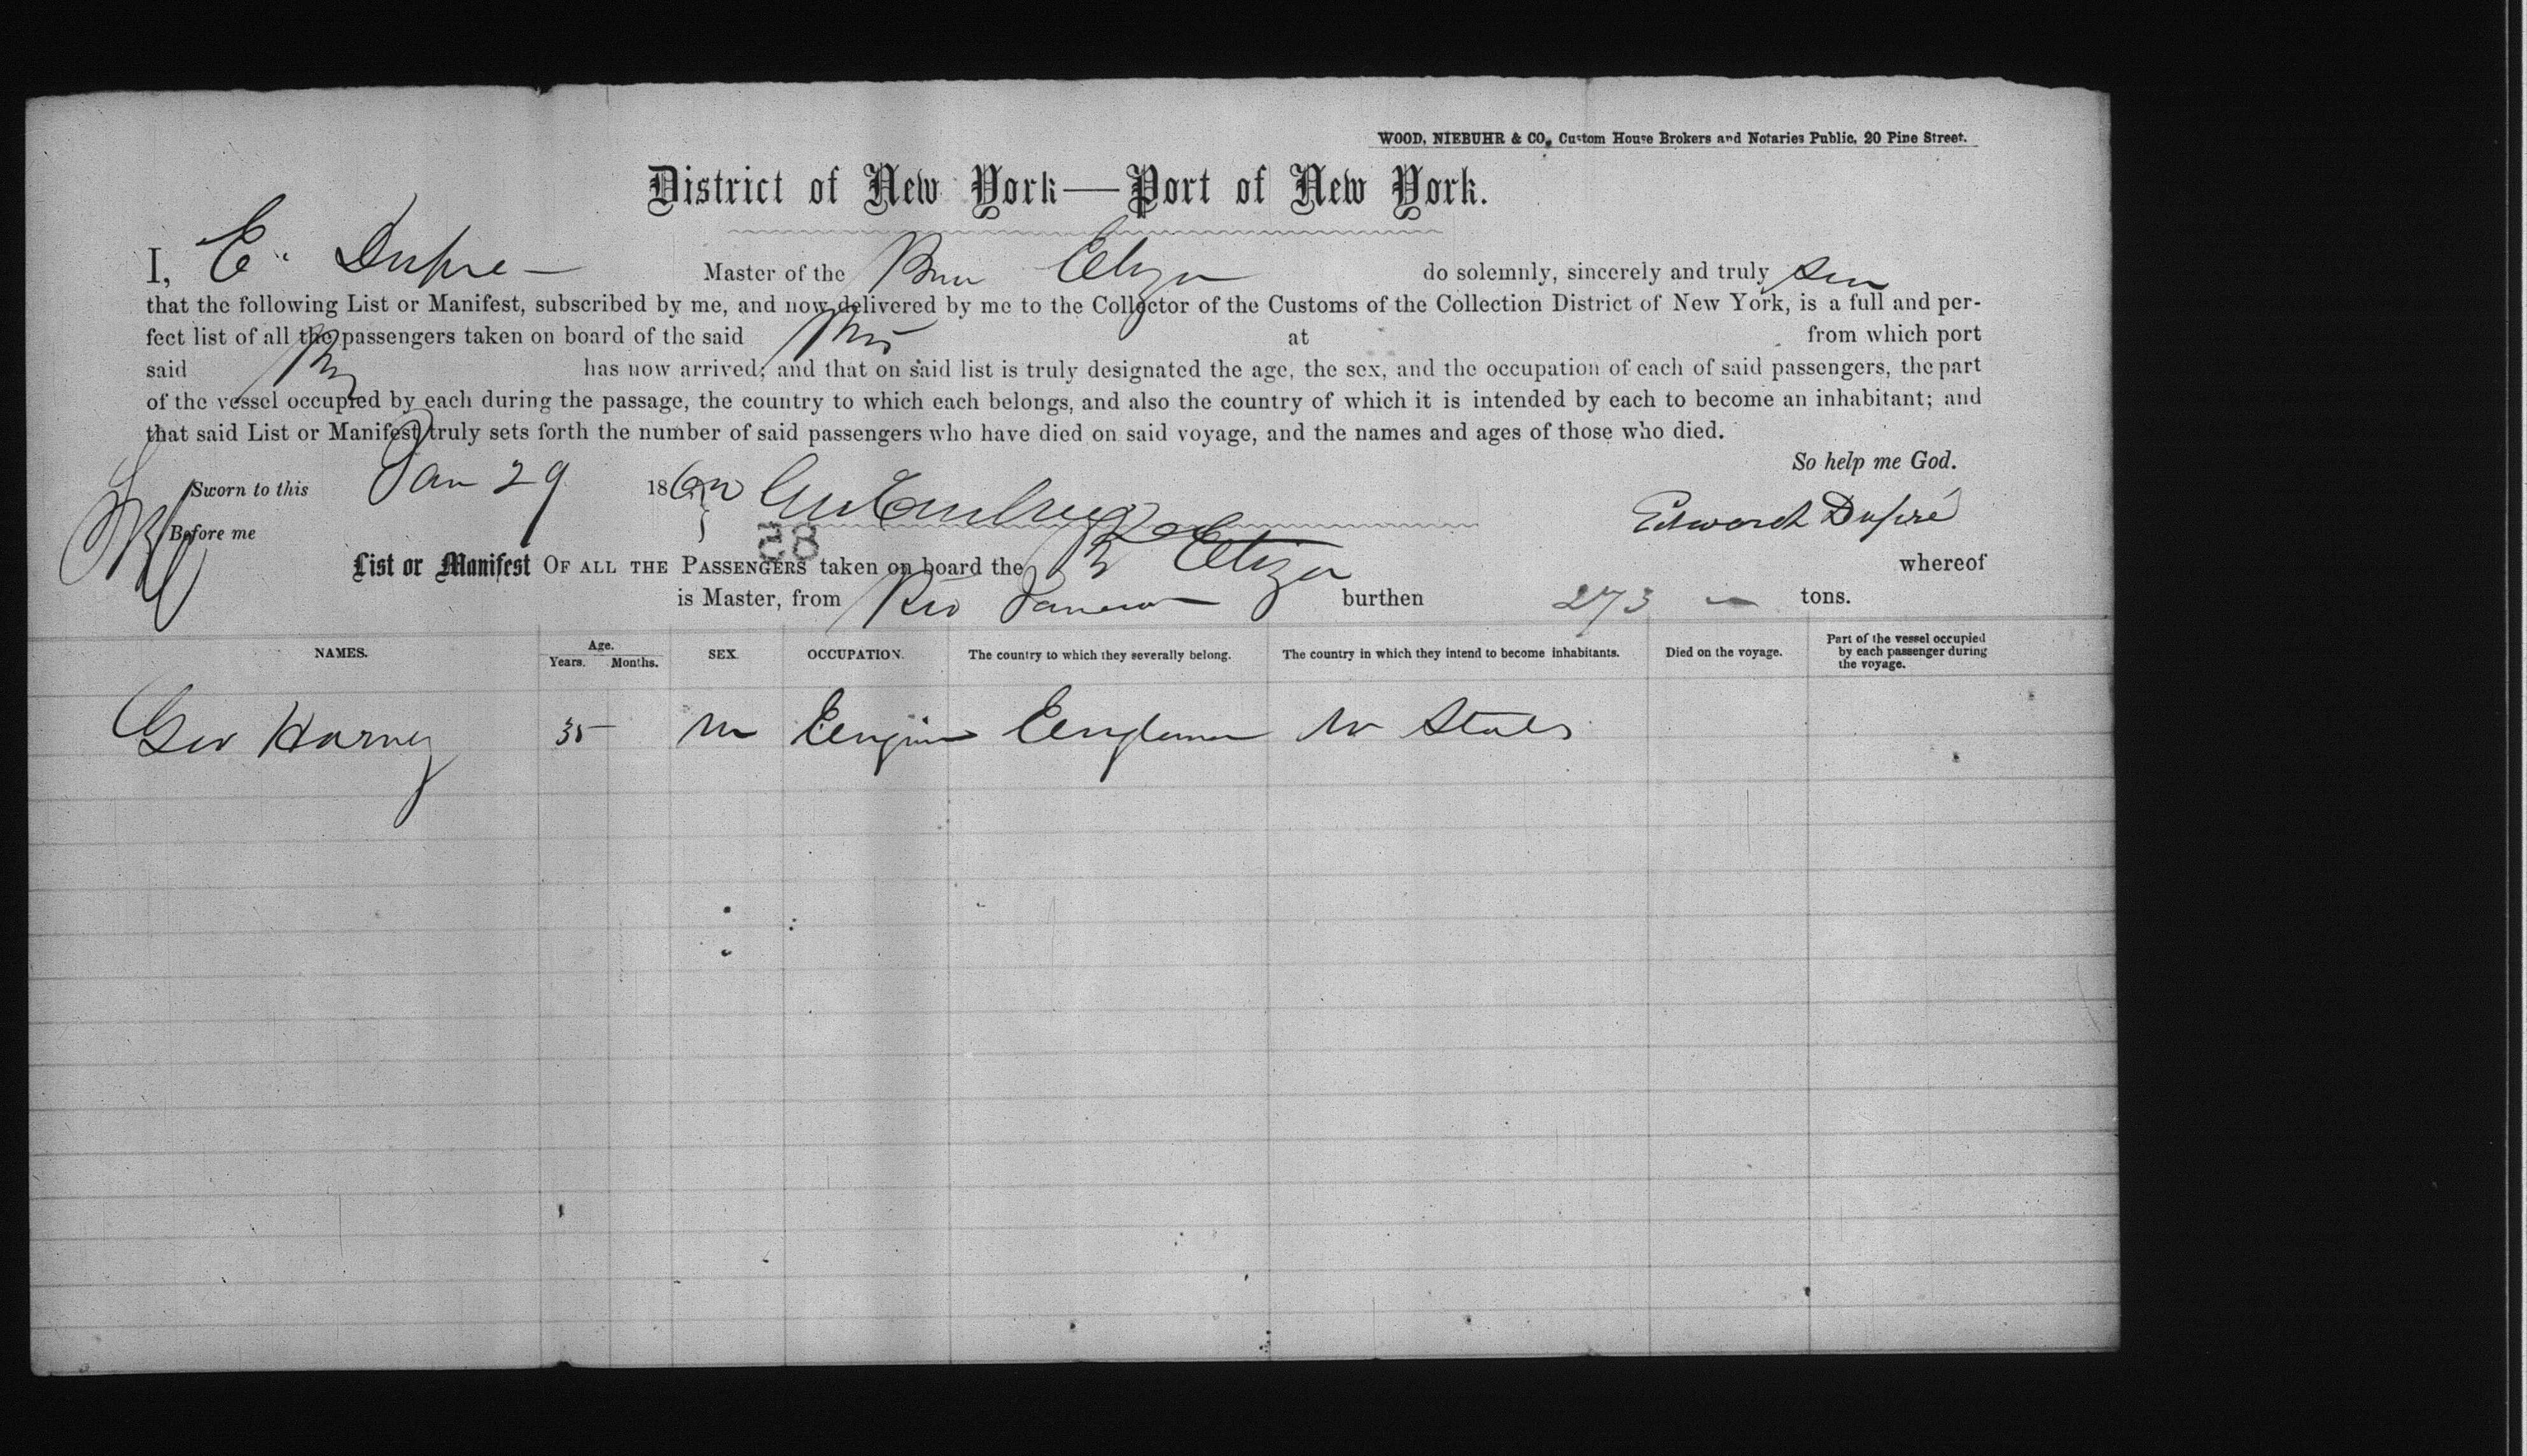 WOOD, NIEBUHR & CO., Custom House Brokers and Notaries Public, 20 Pine Street.
District of New York—Port of New York.
I, E. Dupre — Master of the Eliza do solemnly, sincerely and truly
that the following List or Manifest, subscribed by me, and now delivered by me to the Collector of the Customs of the Collection District of New York, is a full and per-
fect list of all the passengers taken on board of the said at from which port
said has now arrived; and that on said list is truly designated the age, the sex, and the occupation of each of said passengers, the part
of the vessel occupied by each during the passage, the country to which each belongs, and also the country of which it is intended by each to become an inhabitant; and
that said List or Manifest truly sets forth the number of said passengers who have died on said voyage, and the names and ages of those who died.
So help me God.
Sworn to this Jan 29 186
Edward Dupré
Before me
58
List or Manifest OF ALL THE PASSENGERS taken on board the B Eliza whereof
is Master, from Rio Janeiro burthen 273 — tons.
NAMES. Age. Years. Months. SEX. OCCUPATION. The country to which they severally belong. The country in which they intend to become inhabitants. Died on the voyage. Part of the vessel occupied by each passenger during the voyage.
Geo Harvey 35 m States